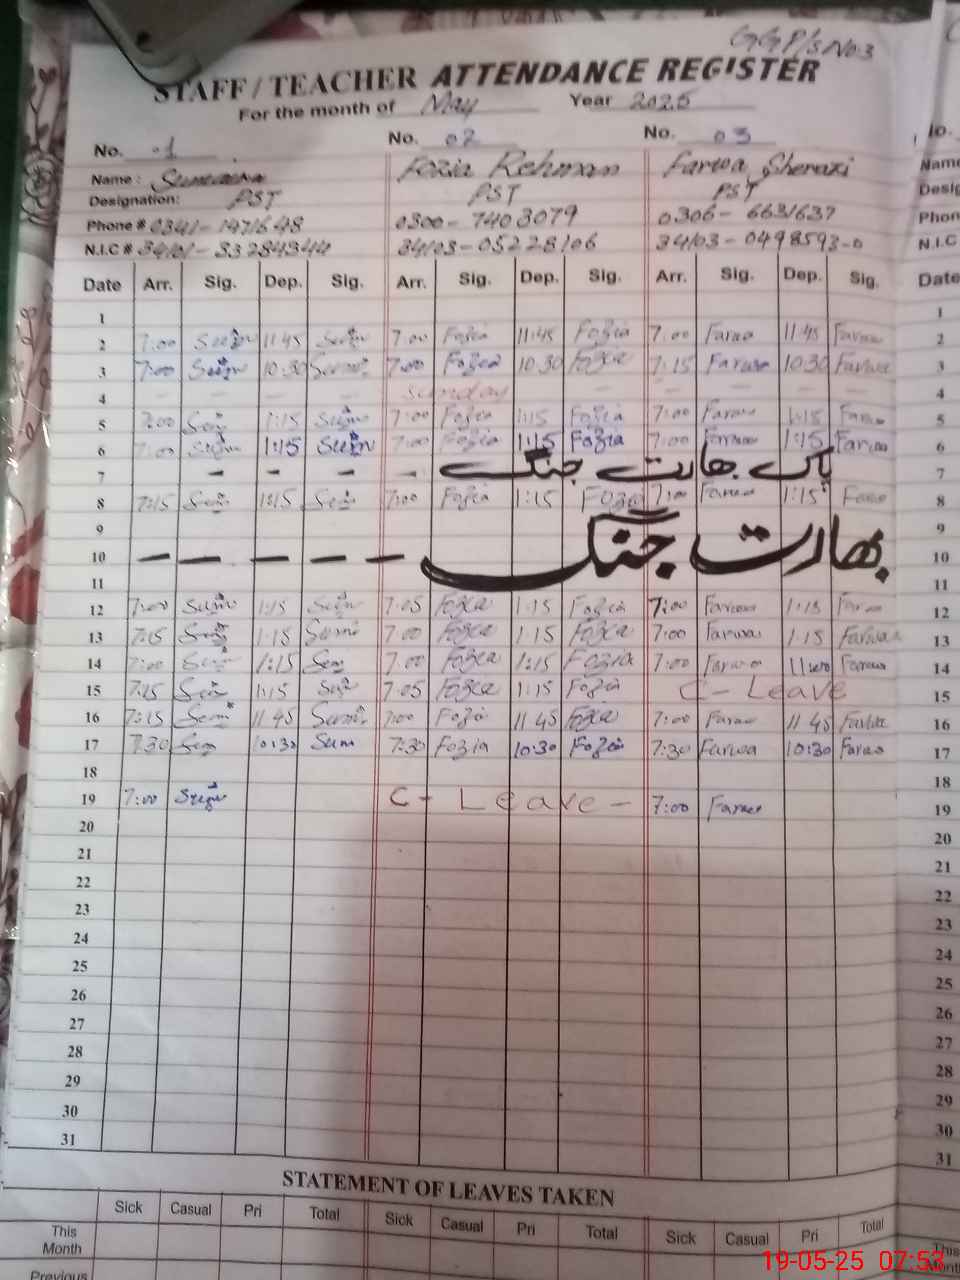 GGP/S No.3
STAFF / TEACHER ATTENDANCE REGISTER
For the month of May Year 2025
No. 01 No. 02 No. 03
Name: Fozia Rehman Farwa Sherazi
Designation: PST PST PST
Phone # 0300-7403079 0306-6631637
N.I.C # 34103-05228106 34103-0498593-0
Date Arr. Sig. Dep. Sig. Arr. Sig. Dep. Sig. Arr. Sig. Dep. Sig. Date
1 1
2 7:00 11:45 7:00 Fozia 11:45 Fozia 7:00 Farwa 11:45 Farwa 2
3 7:00 10:30 7:00 Fozia 10:30 Fozia 7:15 Farwa 10:30 Farwa 3
4 – – – – Sunday – – – – 4
5 7:00 1:15 7:00 Fozia 1:15 Fozia 7:00 Farwa 1:15 Farwa 5
6 7:00 1:15 7:00 Fozia 1:15 Fozia 7:00 Farwa 1:15 Farwa 6
7 – – – – پاک بھارت جنگ 7
8 7:15 1:15 7:00 Fozia 1:15 Fozia 7:00 Farwa 1:15 Farwa 8
9 9
10 – – – – – بھارت جنگ 10
11 11
12 7:00 1:15 7:05 Fozia 1:15 Fozia 7:00 Farwa 1:15 Farwa 12
13 7:15 1:15 7:00 Fozia 1:15 Fozia 7:00 Farwa 1:15 Farwa 13
14 7:00 1:15 7:00 Fozia 1:15 Fozia 7:00 Farwa Farwa 14
15 7:15 1:15 7:05 Fozia 1:15 Fozia C-Leave 15
16 7:15 11:45 7:00 Fozia 11:45 Fozia 7:00 Farwa 11:45 Farwa 16
17 7:30 10:30 7:30 Fozia 10:30 Fozia 7:30 Farwa 10:30 Farwa 17
18 18
19 7:00 C- Leave – 7:00 Farwa 19
20 20
21 21
22 22
23 23
24 24
25 25
26 26
27 27
28 28
29 29
30 30
31 31
STATEMENT OF LEAVES TAKEN
Sick Casual Pri Total Sick Casual Pri Total Sick Casual Pri Total
This Month
Previous
19-05-25 07:53